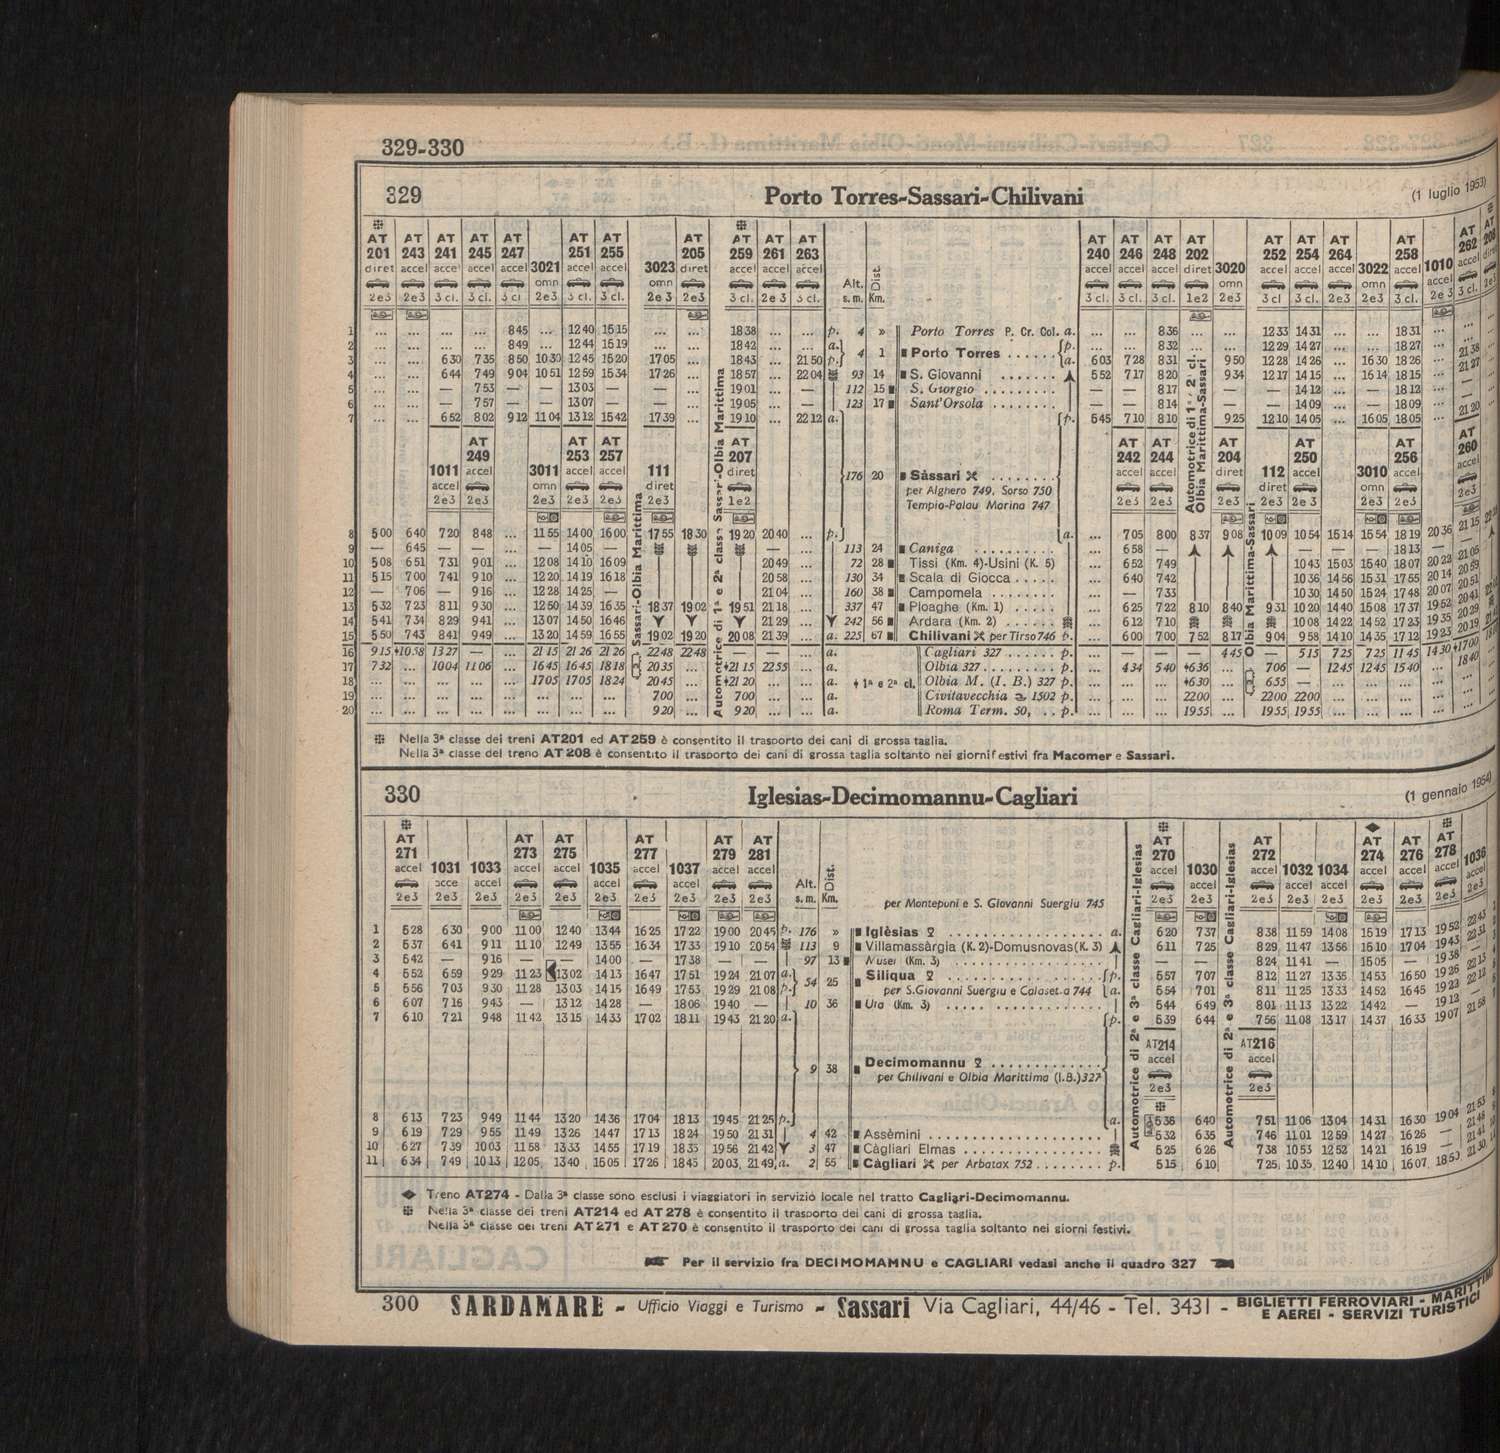 329-330
329 Porto Torres-Sassari-Chilivani (1 luglio 1953)
AT 201 diret 2e3
AT 243 accel 2e3
AT 241 acce' 3 cl.
AT 245 accel 3 cl.
AT 247 accel 3 cl
3021 omn 2e3
AT 251 accel 3 cl.
AT 255 accel 3 cl.
3023 omn 2e3
AT 205 diret 2e3
AT 259 accel 3 cl.
AT 261 accel 2e3
AT 263 accel 3 cl.
Alt. s. m.
Dist. Km.
AT 240 accel 3 cl.
AT 246 accel 3 cl.
AT 248 accel 3 cl.
AT 202 diret 1e2
3020 omn 2e3
AT 252 accel 3 cl
AT 254 accel 3 cl.
AT 264 accel 3 cl.
3022 omn 2e3
AT 258 accel 3 cl.
1010 accel 2e3
AT 262 accel 3 cl.
1 ... ... ... ... 845 ... 1240 1515 ... ... 1838 ... ... p. 4 » Porto Torres P. Cr. Col. a. ... ... 836 ... 1233 1431 ... ... 1831 ... ...
2 ... ... ... ... 849 ... 1244 1519 ... ... 1842 ... ... a. 4 1 Porto Torres ...... p. ... ... 832 ... 1229 1427 ... ... 1827 ... 2138
3 ... ... 630 735 850 1030 1245 1520 1705 ... 1843 ... 2150 p. a. 603 728 831 950 1228 1426 ... 1630 1826 ... 2127
4 ... ... 644 749 904 1051 1259 1534 1726 ... 1857 ... 2204 93 14 S. Giovanni ....... 552 717 820 934 1217 1415 ... 1614 1815 ...
5 ... ... — 753 — — 1303 — — ... 1901 ... — 112 15 S. Giorgio ......... — — 817 — — 1412 ... — 1812 ... —
6 ... ... — 757 — — 1307 — — ... 1905 ... — 123 17 Sant'Orsola ........ — — 814 — — 1409 ... — 1809 ... —
7 ... ... 652 802 912 1104 1312 1542 1739 ... 1910 ... 2212 a. p. 545 710 810 925 1210 1405 ... 1605 1805 ... 2120
1011 accel 2e3
AT 249 accel 2e3
3011 omn 2e3
AT 253 accel 2e3
AT 257 accel 2e3
111 diret 2e3
AT 207 diret 1e2
176 20 Sàssari ........
per Alghero 749, Sorso 750
Tempio-Palau Marina 747
AT 242 accel 2e3
AT 244 accel 2e3
AT 204 diret 2e3
112 diret 2e3
AT 250 accel 2e3
3010 omn 2e3
AT 256 accel 2e3
AT 260 accel 2e3
Sassari-Olbia Marittima
Automotrice di 1ª e 2ª classe Sassari-Olbia Marittima
Automotrice di 1ª e 2ª cl. Olbia Marittima-Sassari
Olbia Marittima-Sassari
8 500 640 720 848 ... 1155 1400 1600 1755 1830 1920 2040 ... p. a. ... 705 800 837 908 1009 1054 1514 1554 1819 2036 2115
9 — 645 — — ... — 1405 — — ... 113 24 Caniga .......... ... 658 — — — — 1813 — 2105
10 508 651 731 901 ... 1208 1410 1609 2049 ... 72 28 Tissi (Km. 4)-Usini (K. 5) ... 652 749 1043 1503 1540 1807 2022 2059
11 515 700 741 910 ... 1220 1419 1618 2058 ... 130 34 Scala di Giocca ..... ... 640 742 1036 1456 1531 1755 2014 2051
12 — 706 — 916 ... 1228 1425 — 2104 ... 160 38 Campomela ........ ... — 733 1030 1450 1524 1748 2007 2041
13 532 723 811 930 ... 1250 1439 1635 1837 1902 1951 2118 ... 337 47 Ploaghe (Km. 1) ..... ... 625 722 810 840 931 1020 1440 1508 1737 1952 2029
14 541 734 829 941 ... 1307 1450 1646 2129 ... 242 56 Ardara (Km. 2) ...... ... 612 710 1008 1422 1452 1723 1935 2019
15 550 743 841 949 ... 1320 1459 1655 1902 1920 2008 2139 ... a. 225 67 Chilivani per Tirso 746 p. ... 600 700 752 817 904 958 1410 1435 1712 1923
16 915 †1058 1327 — ... 2115 2126 2126 2248 2248 — — ... a. Cagliari 327 ...... p. ... ... ... 445 — 515 725 725 1145 1430 †1700
17 732 ... 1004 1106 ... 1645 1645 1818 2035 ... †2115 2255 ... a. Olbia 327 ......... p. ... 434 540 †636 ... 706 — 1245 1245 1540 ... 1840
18 ... ... ... ... ... 1705 1705 1824 2045 ... †2120 ... ... a. † 1ª e 2ª cl. Olbia M. (I. B.) 327 p. ... ... ... †630 ... 655 — ... ... ... ... ...
19 ... ... ... ... ... ... ... ... 700 ... 700 ... ... a. Civitavecchia 1502 p. ... ... ... 2200 ... 2200 2200 ... ... ... ... ...
20 ... ... ... ... ... ... ... ... 920 ... 920 ... ... a. Roma Term. 50, .. p. ... ... ... 1955 ... 1955 1955 ... ... ... ... ...
Nella 3ª classe dei treni AT201 ed AT259 è consentito il trasporto dei cani di grossa taglia.
Nella 3ª classe del treno AT208 è consentito il trasporto dei cani di grossa taglia soltanto nei giorni festivi fra Macomer e Sassari.
330 Iglesias-Decimomannu-Cagliari (1 gennaio 1954)
AT 271 accel 2e3
1031 acce 2e3
1033 accel 2e3
AT 273 accel 2e3
AT 275 accel 2e3
1035 accel 2e3
AT 277 accel 2e3
1037 accel 2e3
AT 279 accel 2e3
AT 281 accel 2e3
Alt. s. m.
Dist. Km.
per Montepuni e S. Giovanni Suergiu 745
AT 270 accel 2e3
1030 accel 2e3
AT 272 accel 2e3
1032 accel 2e3
1034 accel 2e3
AT 274 accel 2e3
AT 276 accel 2e3
AT 278 accel 2e3
1036 accel 2e3
Automotrice di 2ª e 3ª classe Cagliari-Iglesias
Automotrice di 2ª e 3ª classe Cagliari-Iglesias
1 528 630 900 1100 1240 1344 1625 1722 1900 2045 p. 176 » Iglèsias ................. a. 620 737 838 1159 1408 1519 1713 1952 2243
2 537 641 911 1110 1249 1355 1634 1733 1910 2054 113 9 Villamassàrgia (K. 2)-Domusnovas (K. 3) 611 725 829 1147 1356 1510 1704 1943 2231
3 542 — 916 — — 1400 — 1738 — — 97 13 Musei (Km. 3) — — 824 1141 — 1505 — 1938 —
4 552 659 929 1123 1302 1413 1647 1751 1924 2107 a. 54 25 Siliqua p. 557 707 812 1127 1335 1453 1650 1926 2213
5 556 703 930 1128 1303 1415 1649 1753 1929 2108 p. per S.Giovanni Suergiu e Calasetta 744 a. 554 701 811 1125 1333 1452 1645 1923 2212
6 607 716 943 — 1312 1428 — 1806 1940 — 10 36 Uta (Km. 3) 544 649 801 1113 1322 1442 — 1912 —
7 610 721 948 1142 1315 1433 1702 1811 1943 2120 a. p. 539 644 756 1108 1317 1437 1633 1907 2158
9 38 Decimomannu .............
per Chilivani e Olbia Marittima (I.B.) 327
AT214 accel 2e3
AT216 accel 2e3
8 613 723 949 1144 1320 1436 1704 1813 1945 2125 p. a. 536 640 751 1106 1304 1431 1630 1904 2153
9 619 729 955 1149 1326 1447 1713 1824 1950 2131 4 42 Assèmini 532 635 746 1101 1259 1427 1626 — 2148
10 627 739 1003 1158 1333 1455 1719 1835 1956 2142 3 47 Càgliari Elmas 525 626 738 1053 1252 1421 1619 — 2141
11 634 749 1013 1205 1340 1505 1726 1845 2003 2149 a. 2 55 Càgliari per Arbatax 752 ........ p. 515 610 725 1035 1240 1410 1607 1853 2130
Treno AT274 - Dalla 3ª classe sono esclusi i viaggiatori in servizio locale nel tratto Cagliari-Decimomannu.
Nella 3ª classe dei treni AT214 ed AT278 è consentito il trasporto dei cani di grossa taglia.
Nella 3ª classe dei treni AT271 e AT270 è consentito il trasporto dei cani di grossa taglia soltanto nei giorni festivi.
Per il servizio fra DECIMOMAMNU e CAGLIARI vedasi anche il quadro 327
300 SARDAMARE - Ufficio Viaggi e Turismo - Sassari Via Cagliari, 44/46 - Tel. 3431 - BIGLIETTI FERROVIARI - MARITTIMI
E AEREI - SERVIZI TURISTICI